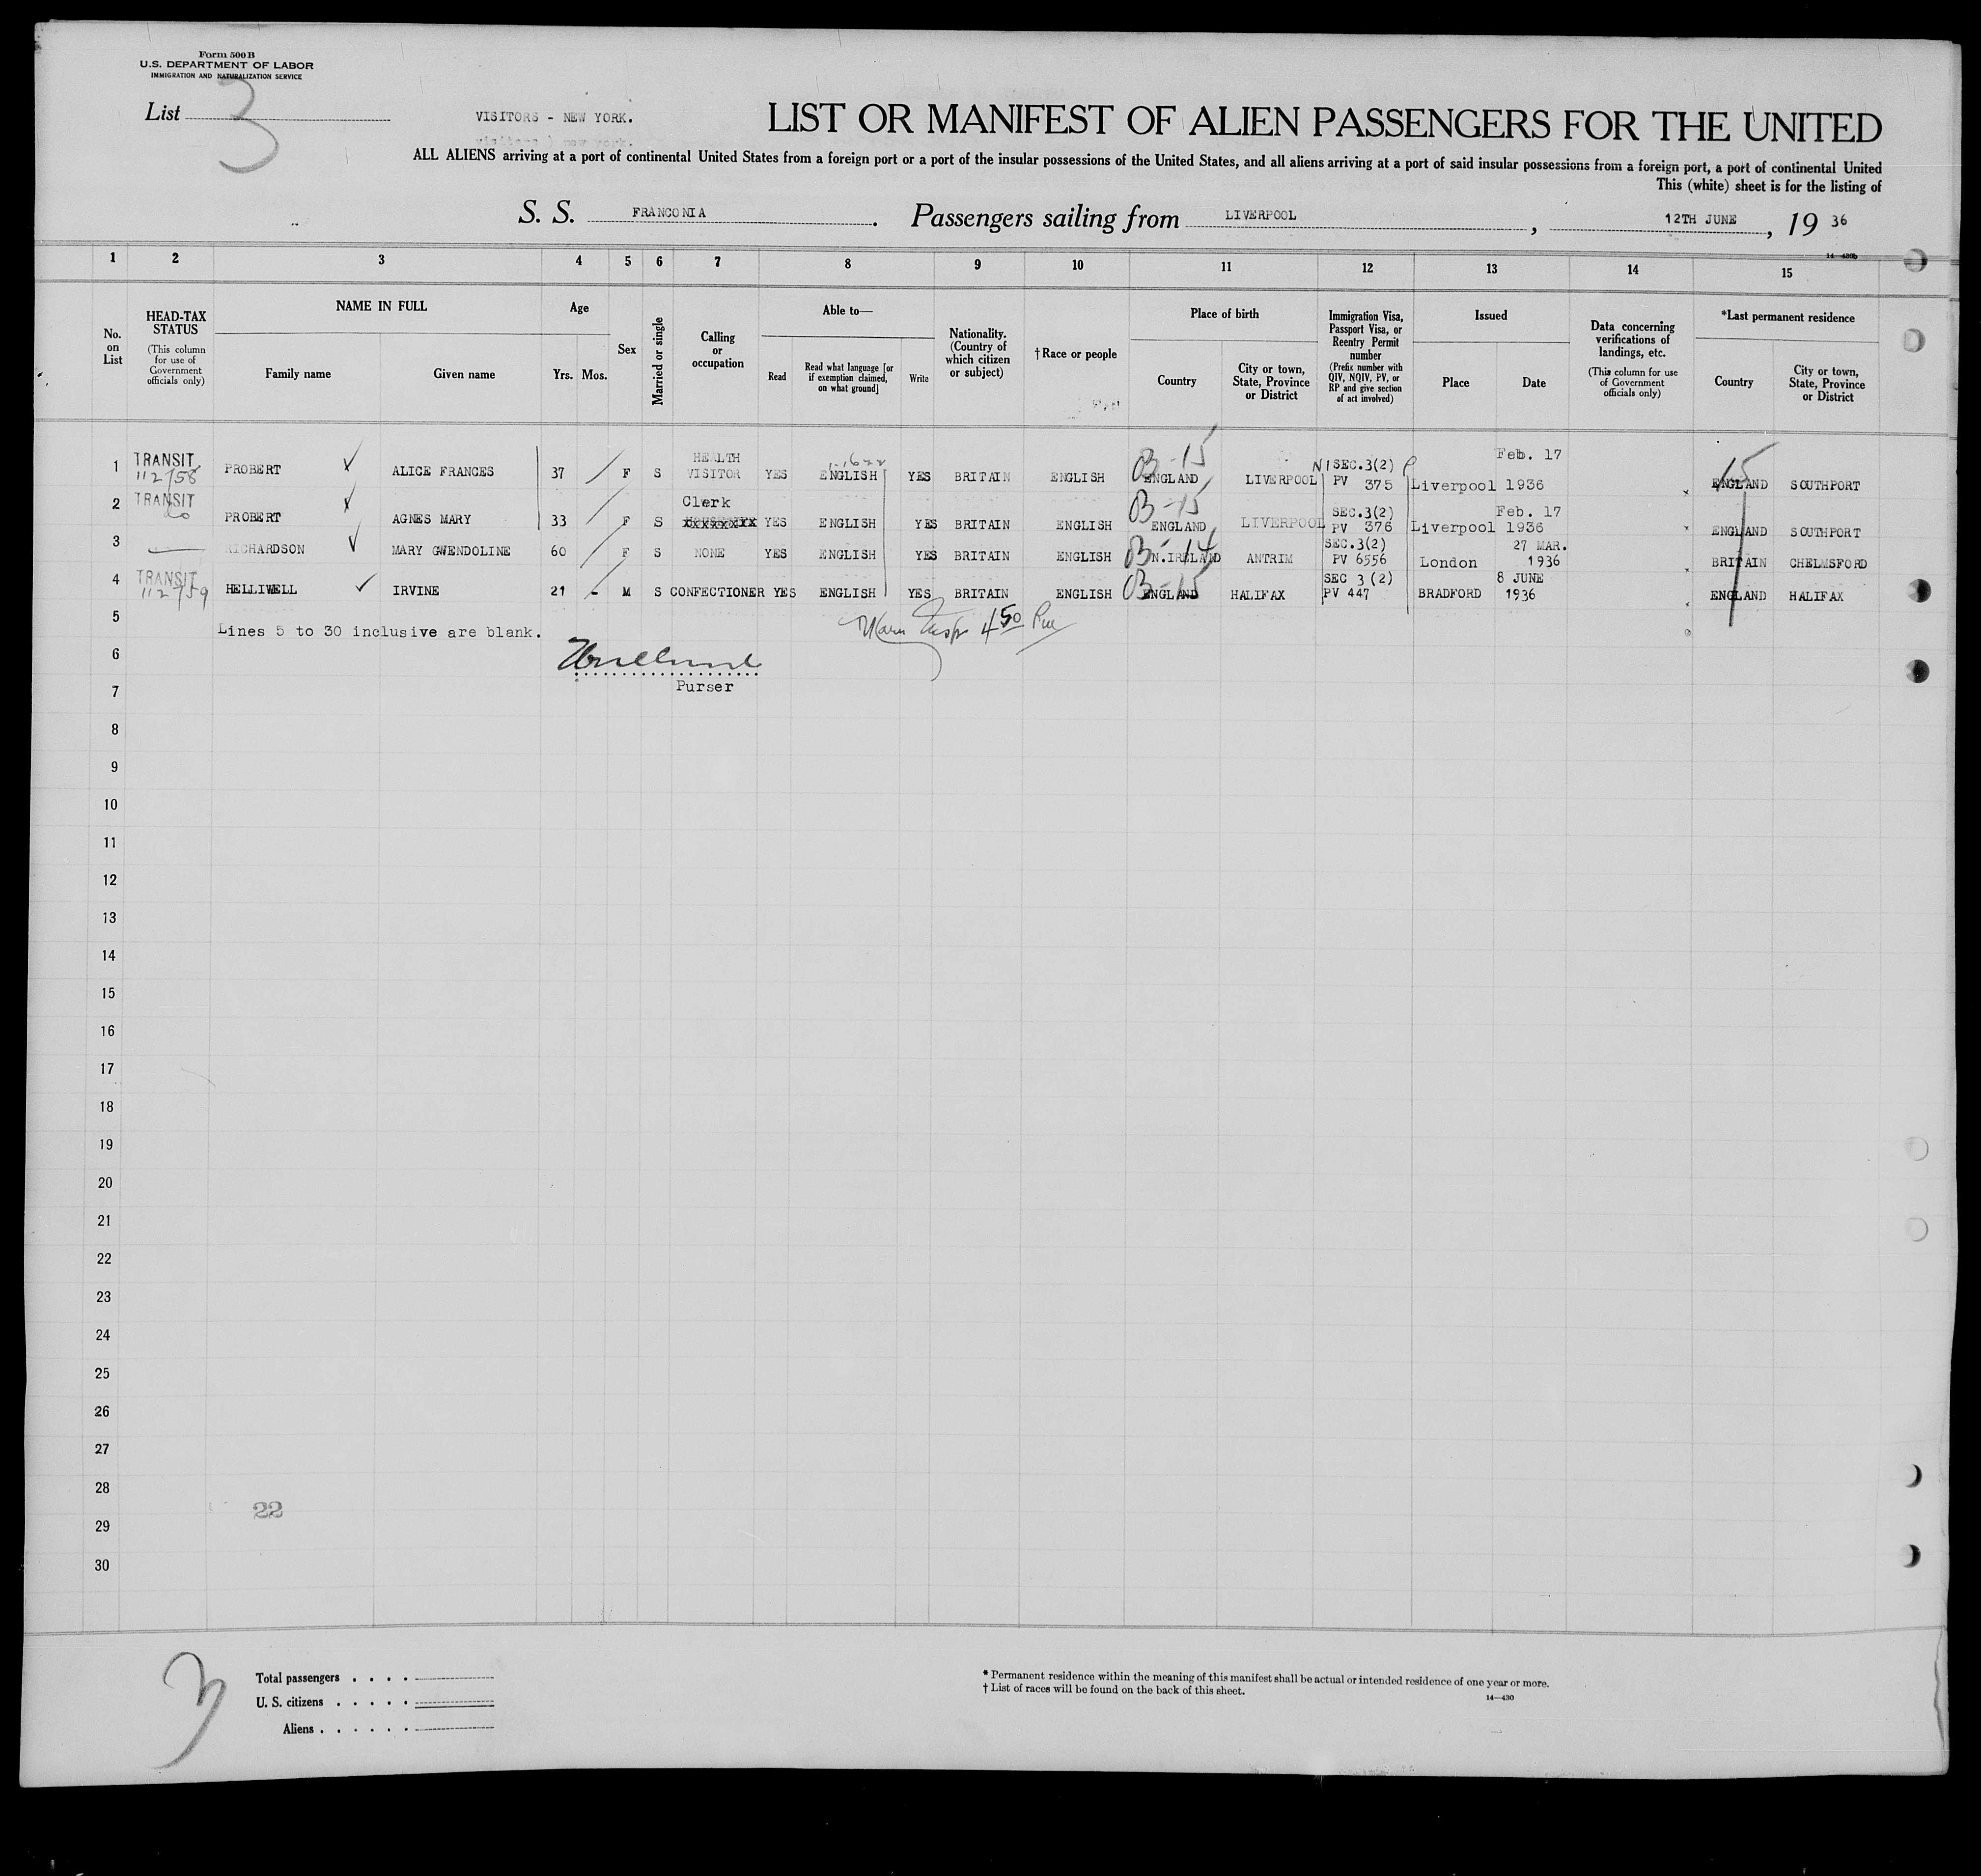 Form 500 B
U.S. DEPARTMENT OF LABOR
IMMIGRATION AND NATURALIZATION SERVICE
List 3
VISITORS - NEW YORK.
LIST OR MANIFEST OF ALIEN PASSENGERS FOR THE UNITED
ALL ALIENS arriving at a port of continental United States from a foreign port or a port of the insular possessions of the United States, and all aliens arriving at a port of said insular possessions from a foreign port, a port of continental United
This (white) sheet is for the listing of
S. S. FRANCONIA. Passengers sailing from LIVERPOOL, 12TH JUNE, 19 36
1 2 3 4 5 6 7 8 9 10 11 12 13 14 15
No. on List
HEAD-TAX STATUS
(This column for use of Government officials only)
NAME IN FULL
Family name
Given name
Age
Yrs. Mos.
Sex
Married or single
Calling or occupation
Able to—
Read
Read what language [or if exemption claimed, on what ground]
Write
Nationality. (Country of which citizen or subject)
† Race or people
Place of birth
Country
City or town, State, Province or District
Immigration Visa, Passport Visa, or Reentry Permit number
(Prefix number with QIV, NQIV, PV, or RP and give section of act involved)
Issued
Place
Date
Data concerning verifications of landings, etc.
(This column for use of Government officials only)
*Last permanent residence
Country
City or town, State, Province or District
1 TRANSIT 112758 PROBERT ALICE FRANCES 37 F S HEALTH VISITOR YES ENGLISH YES BRITAIN ENGLISH B-15 ENGLAND LIVERPOOL SEC.3(2) PV 375 Liverpool Feb. 17 1936 15 ENGLAND SOUTHPORT
2 TRANSIT do PROBERT AGNES MARY 33 F S Clerk YES ENGLISH YES BRITAIN ENGLISH B-15 ENGLAND LIVERPOOL SEC.3(2) PV 376 Liverpool Feb. 17 1936 ENGLAND SOUTHPORT
3 RICHARDSON MARY GWENDOLINE 60 F S NONE YES ENGLISH YES BRITAIN ENGLISH B-14 N.IRELAND ANTRIM SEC.3(2) PV 6556 London 27 MAR. 1936 BRITAIN CHELMSFORD
4 TRANSIT 112759 HELLIWELL IRVINE 21 - M S CONFECTIONER YES ENGLISH YES BRITAIN ENGLISH B-15 ENGLAND HALIFAX SEC 3(2) PV 447 BRADFORD 8 JUNE 1936 ENGLAND HALIFAX
5
Lines 5 to 30 inclusive are blank.
6
Purser
7
8
9
10
11
12
13
14
15
16
17
18
19
20
21
22
23
24
25
26
27
28
22
29
30
3
Total passengers . . . .
U. S. citizens . . . . .
Aliens . . . . . .
* Permanent residence within the meaning of this manifest shall be actual or intended residence of one year or more.
† List of races will be found on the back of this sheet.
14—430